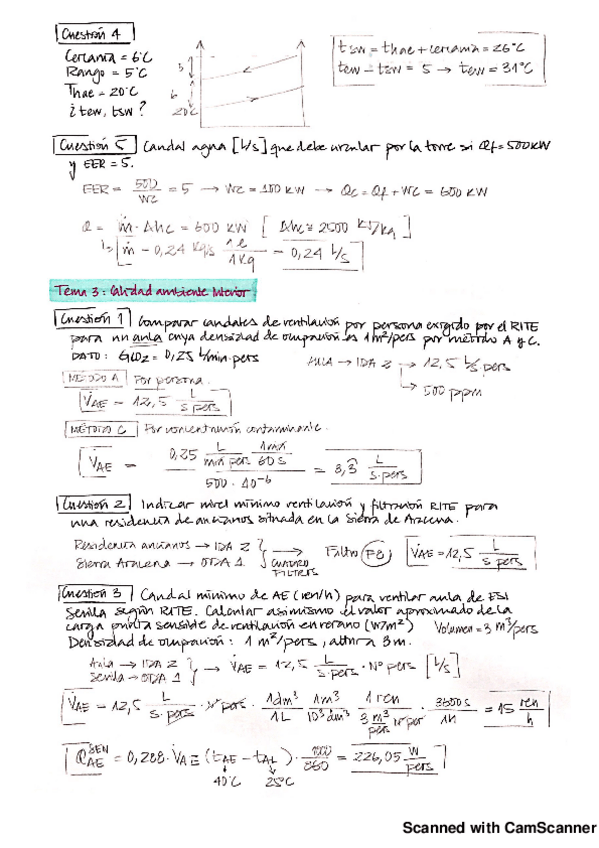 Cuestión 4
Cercanía = 6°C
Rango = 5°C
Thae = 20°C
¿ tew, tsw ?
5
6
20°C
tsw = thae + cercanía = 26°C
tew - tsw = 5 → tew = 31°C
Cuestión 5 Caudal agua [L/s] que debe circular por la torre si Qf = 500 kW
y EER = 5.
EER = 500 / Wc = 5 → Wc = 100 kW → Qc = Qf + Wc = 600 kW
Q = ṁ · Δhc = 600 kW [ Δhc ≈ 2500 kJ/kg ]
ṁ = 0,24 kg/s 1 l / 1 kg = 0,24 L/s
Tema 3: Calidad ambiente interior
Cuestión 1 Comparar caudales de ventilación por persona exigido por el RITE
para un aula cuya densidad de ocupación es 1 m²/pers por método A y C.
DATO: GCO2 = 0,25 L/min·pers AULA → IDA 2 → 12,5 L/s·pers
→ 500 ppm
MÉTODO A Por persona.
V̇AE = 12,5 L / s·pers
MÉTODO C Por concentración contaminante.
V̇AE = 0,25 L / min pers · 1 min / 60 s / 500 · 10⁻⁶ = 8,3 L / s·pers
Cuestión 2 Indicar nivel mínimo ventilación y filtración RITE para
una residencia de ancianos situada en la Sierra de Aracena.
Residencia ancianos → IDA 2
Sierra Aracena → ODA 1
} → CUADRO FILTROS Filtro F8 V̇AE = 12,5 L / s·pers
Cuestión 3 Caudal mínimo de AE (ren/h) para ventilar aula de ESI
Sevilla según RITE. Calcular asimismo el valor aproximado de la
carga punta sensible de ventilación en verano (W/m²) Volumen = 3 m³/pers
Densidad de ocupación: 1 m²/pers, altura 3m.
Aula → IDA 2
Sevilla → ODA 1
} → V̇AE = 12,5 L / s·pers · Nº pers [L/s]
V̇AE = 12,5 L / s·pers · Nº pers · 1 dm³ / 1 L · 1 m³ / 10³ dm³ · 1 ren / 3 m³/pers Nº per · 3600 s / 1 h = 15 ren / h
Q̇AE SEN = 0,288 · V̇AE (tAE - tAL) · 1000 / 860 = 226,05 W / pers
40°C 25°C
Scanned with CamScanner